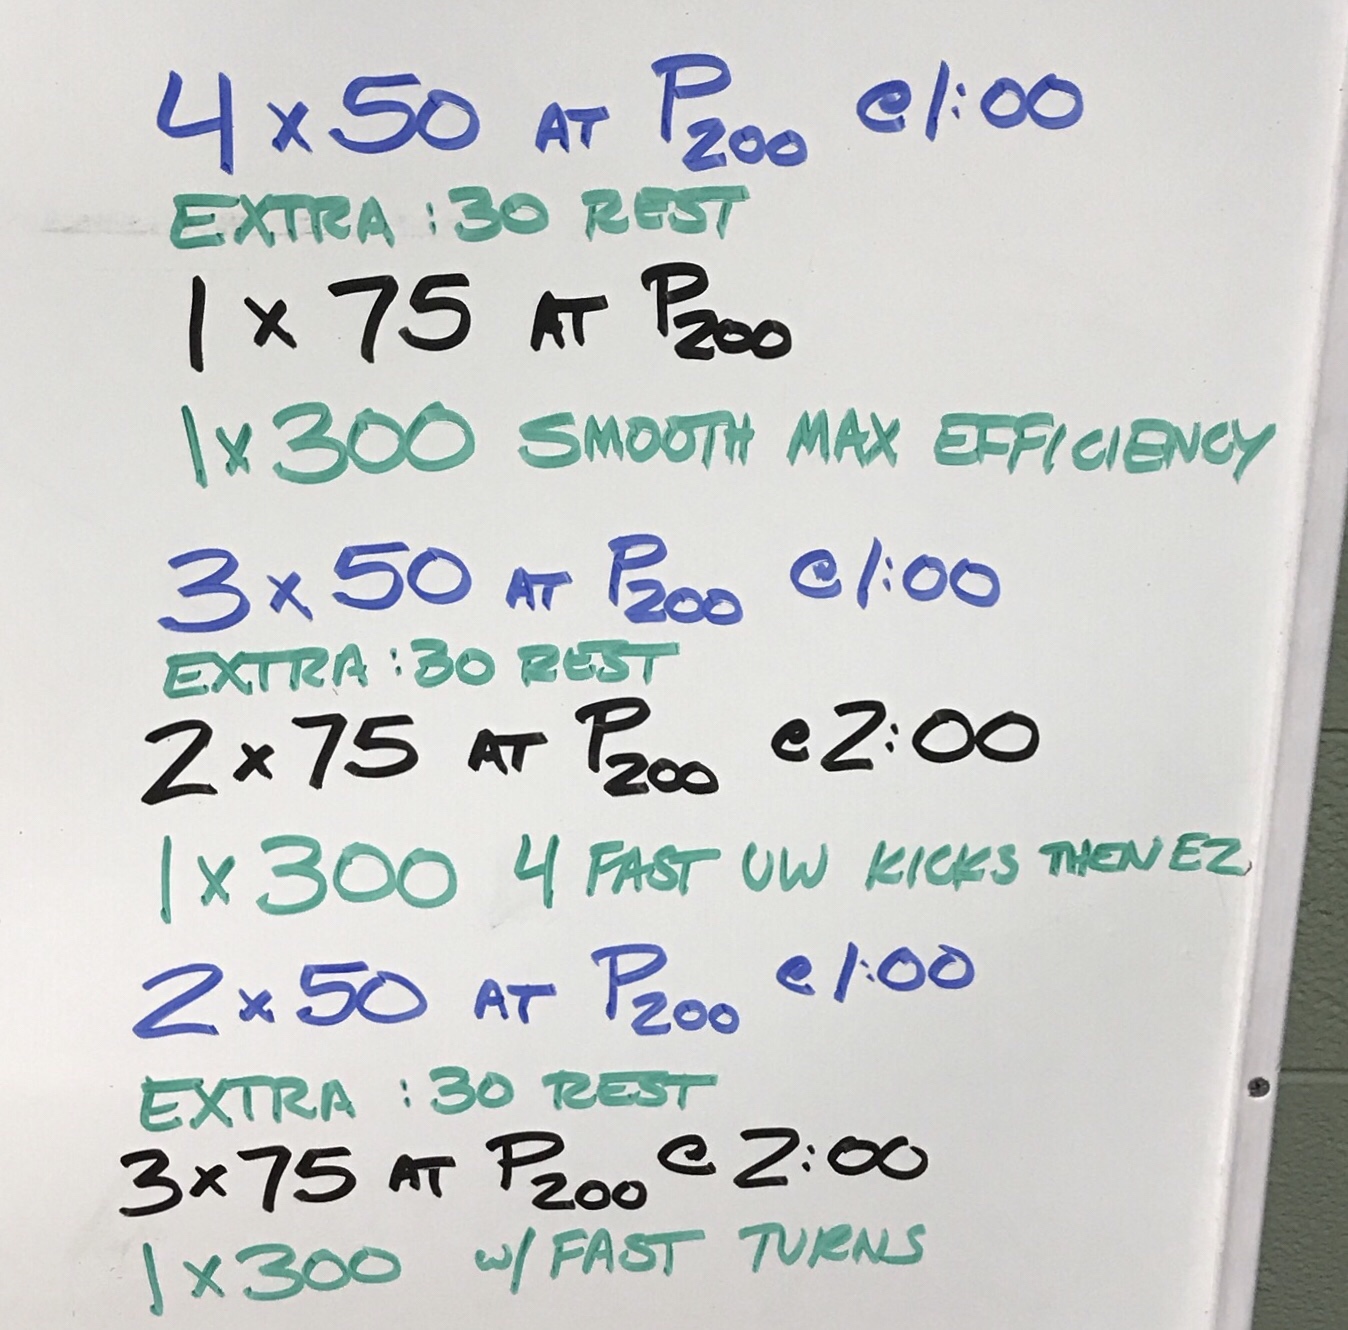 4 x 50 AT P200 @ 1:00
EXTRA :30 REST
1 x 75 AT P200
1 x 300 SMOOTH MAX EFFICIENCY
3 x 50 AT P200 @ 1:00
EXTRA :30 REST
2 x 75 AT P200 @ 2:00
1 x 300 4 FAST UW KICKS THEN EZ
2 x 50 AT P200 @ 1:00
EXTRA :30 REST
3 x 75 AT P200 @ 2:00
1 x 300 w/ FAST TURNS